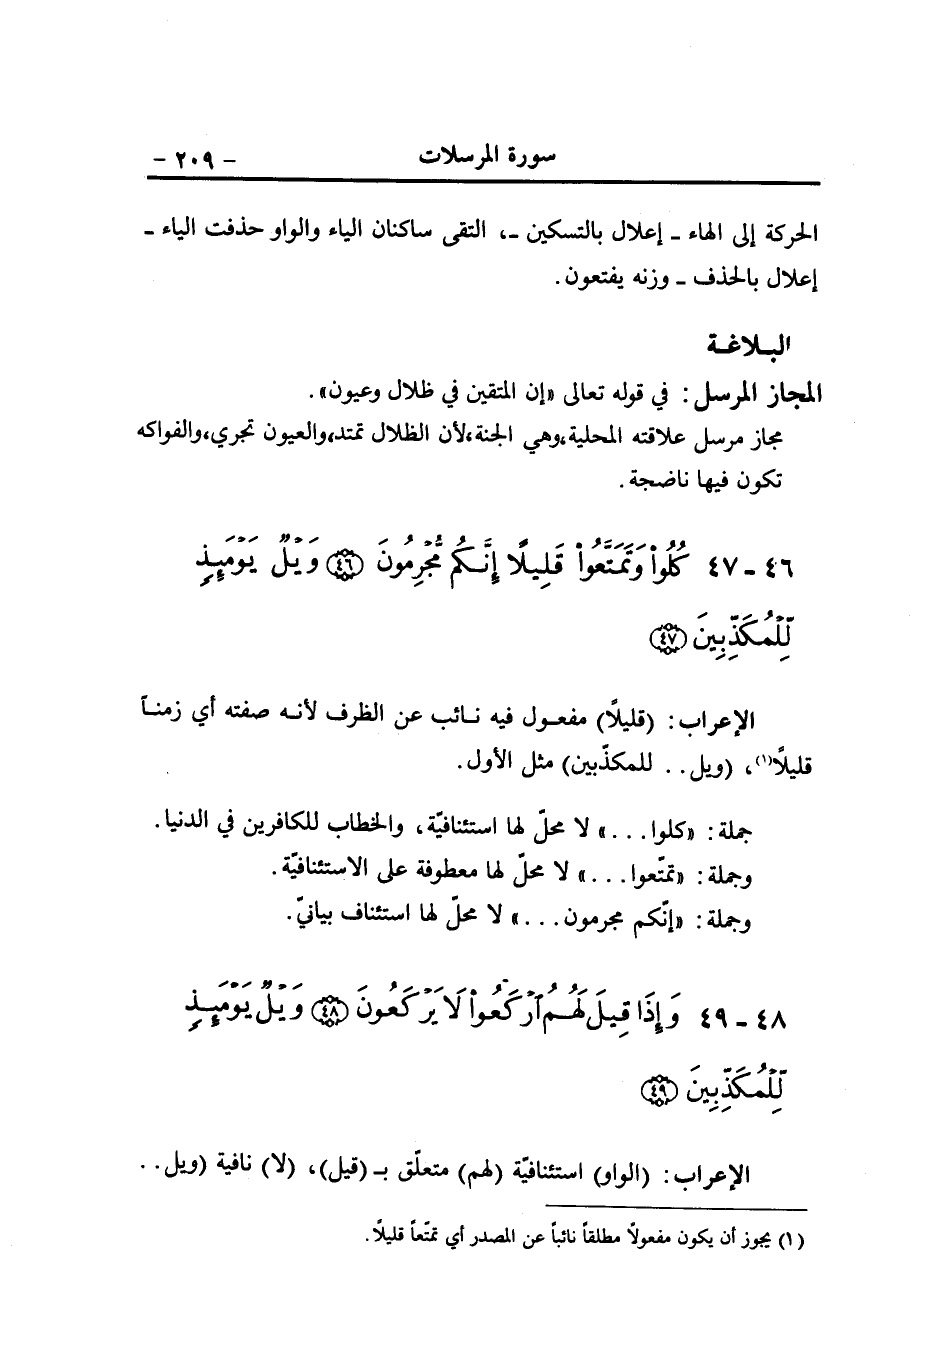 سورة المرسلات - ٢٠٩ -
الحركة إلى الهاء ـ إعلال بالتسكين ـ، التقى ساكنان الياء والواو حذفت الياء ـ
إعلال بالحذف ـ وزنه يفتعون.
البـلاغـة
المجاز المرسل: في قوله تعالى «إن المتقين في ظلال وعيون».
مجاز مرسل علاقته المحلية،وهي الجنة،لأن الظلال تمتد،والعيون تجري،والفواكه
تكون فيها ناضجة.
٤٦ ـ ٤٧ كُلُواْ وَتَمَتَّعُواْ قَلِيلًا إِنَّكُم مُّجْرِمُونَ ﴿٤٦﴾ وَيْلٌ يَوْمَئِذٍ
لِّلْمُكَذِّبِينَ ﴿٤٧﴾
الإعراب: (قليلًا) مفعـول فيه نـائب عن الظرف لأنـه صفته أي زمنـاً
قليلًا(١)، (ويل.. للمكذّبين) مثل الأول.
جملة: «كلوا...» لا محلّ لها استئنافيّة، والخطاب للكافرين في الدنيا.
وجملة: «تمتّعوا...» لا محلّ لها معطوفة على الاستئنافيّة.
وجملة: «إنّكم مجرمون...» لا محلّ لها استئناف بيانيّ.
٤٨ ـ ٤٩ وَإِذَا قِيلَ لَهُمُ ٱرْكَعُواْ لَا يَرْكَعُونَ ﴿٤٨﴾ وَيْلٌ يَوْمَئِذٍ
لِّلْمُكَذِّبِينَ ﴿٤٩﴾
الإعراب: (الواو) استئنافيّة (لهم) متعلّق بـ (قيل)، (لا) نافية (ويل..
(١) يجوز أن يكون مفعولاً مطلقاً نائباً عن المصدر أي تمتّعاً قليلًا.